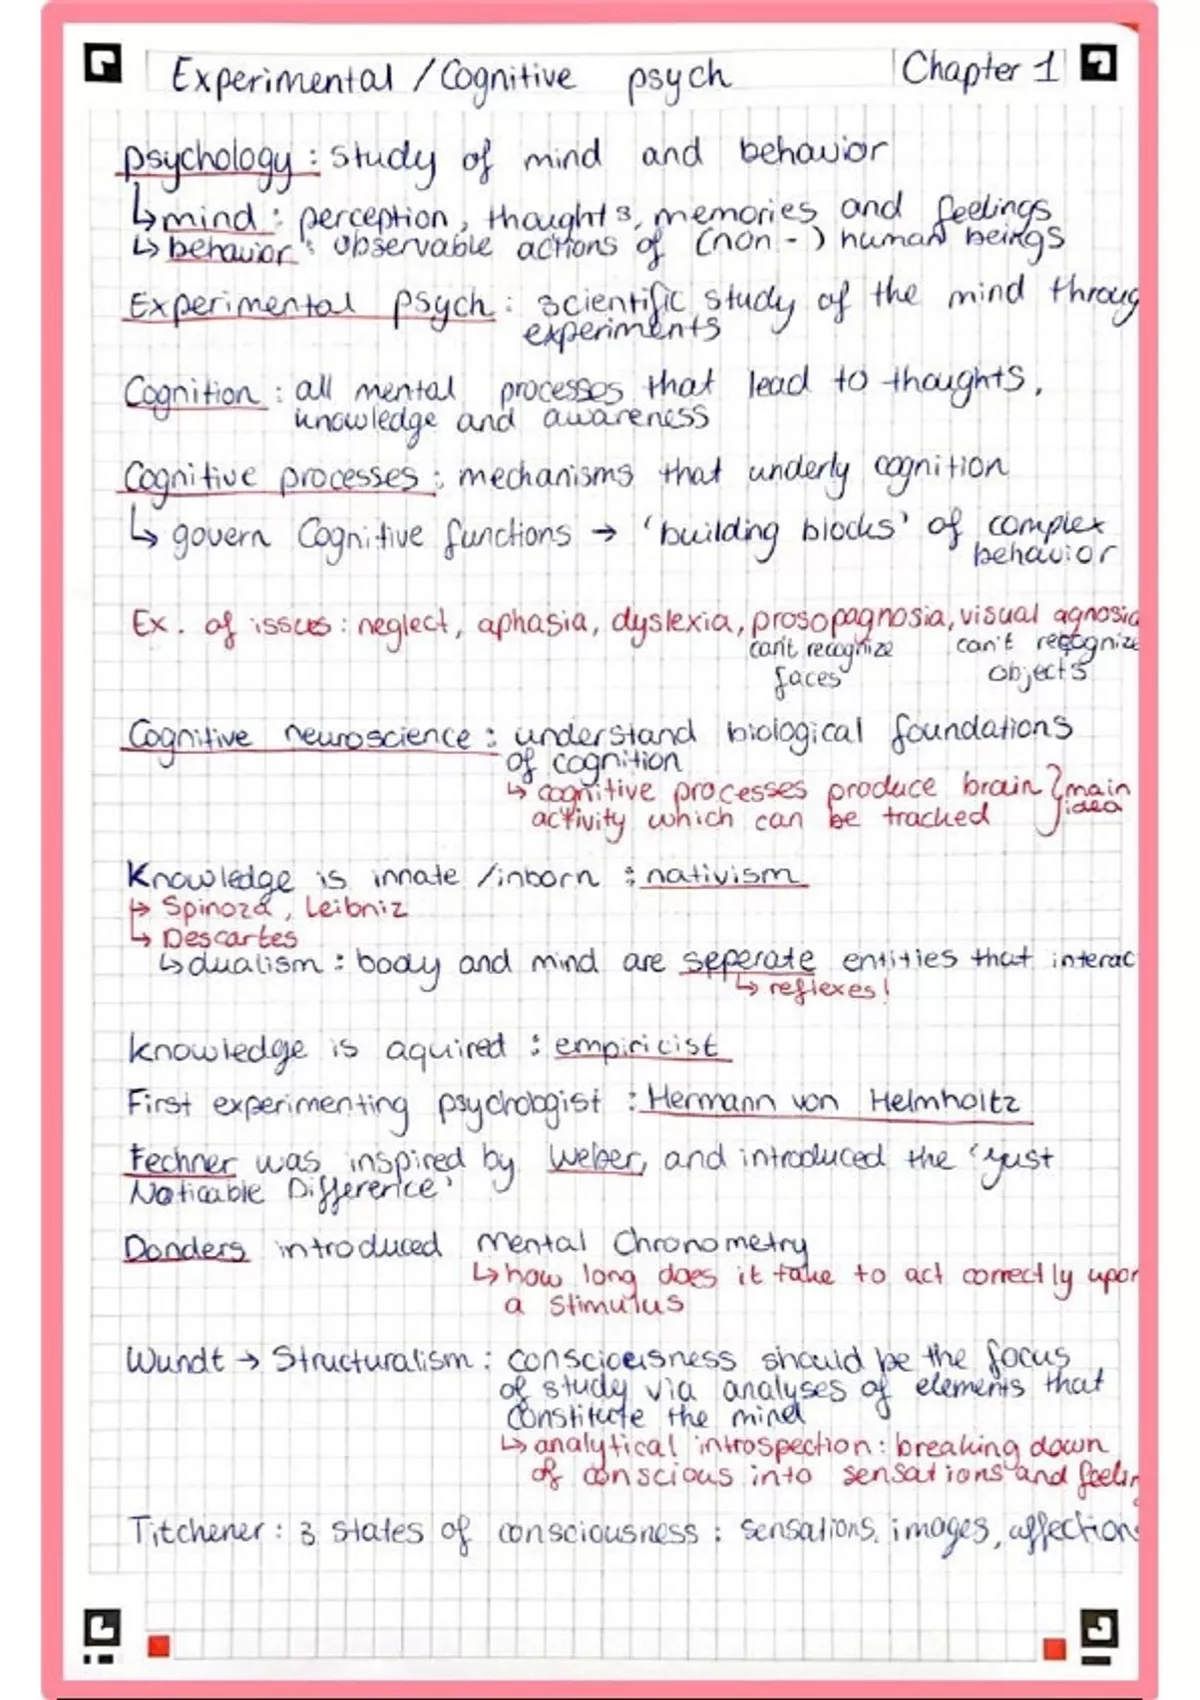 Experimental / Cognitive psych Chapter 1
psychology : study of mind and behavior
↳ mind : perception, thoughts, memories and feelings
↳ behavior : observable actions of (non-) human beings
Experimental psych : scientific study of the mind throug
experiments
Cognition : all mental processes that lead to thoughts,
knowledge and awareness
Cognitive processes : mechanisms that underly cognition
↳ govern Cognitive functions → 'building blocks' of complex
behavior
Ex. of issues : neglect, aphasia, dyslexia, prosopagnosia, visual agnosia
can't recognize can't recognize
faces objects
Cognitive neuroscience : understand biological foundations
of cognition
↳ cognitive processes produce brain } main
activity which can be tracked idea
Knowledge is innate / inborn : nativism
↳ Spinoza, Leibniz
↳ Descartes
↳ dualism : body and mind are seperate entities that interac
↳ reflexes!
knowledge is aquired : empiricist
First experimenting psychologist : Hermann von Helmholtz
Fechner was inspired by Weber, and introduced the 'just
Noticable Difference'
Donders introduced mental Chronometry
↳ how long does it take to act correctly upon
a stimulus
Wundt → Structuralism : consciousness should be the focus
of study via analyses of elements that
constitute the mind
↳ analytical introspection : breaking down
of conscious into sensations and feelin
Titchener : 3 states of consciousness : sensations, images, affections